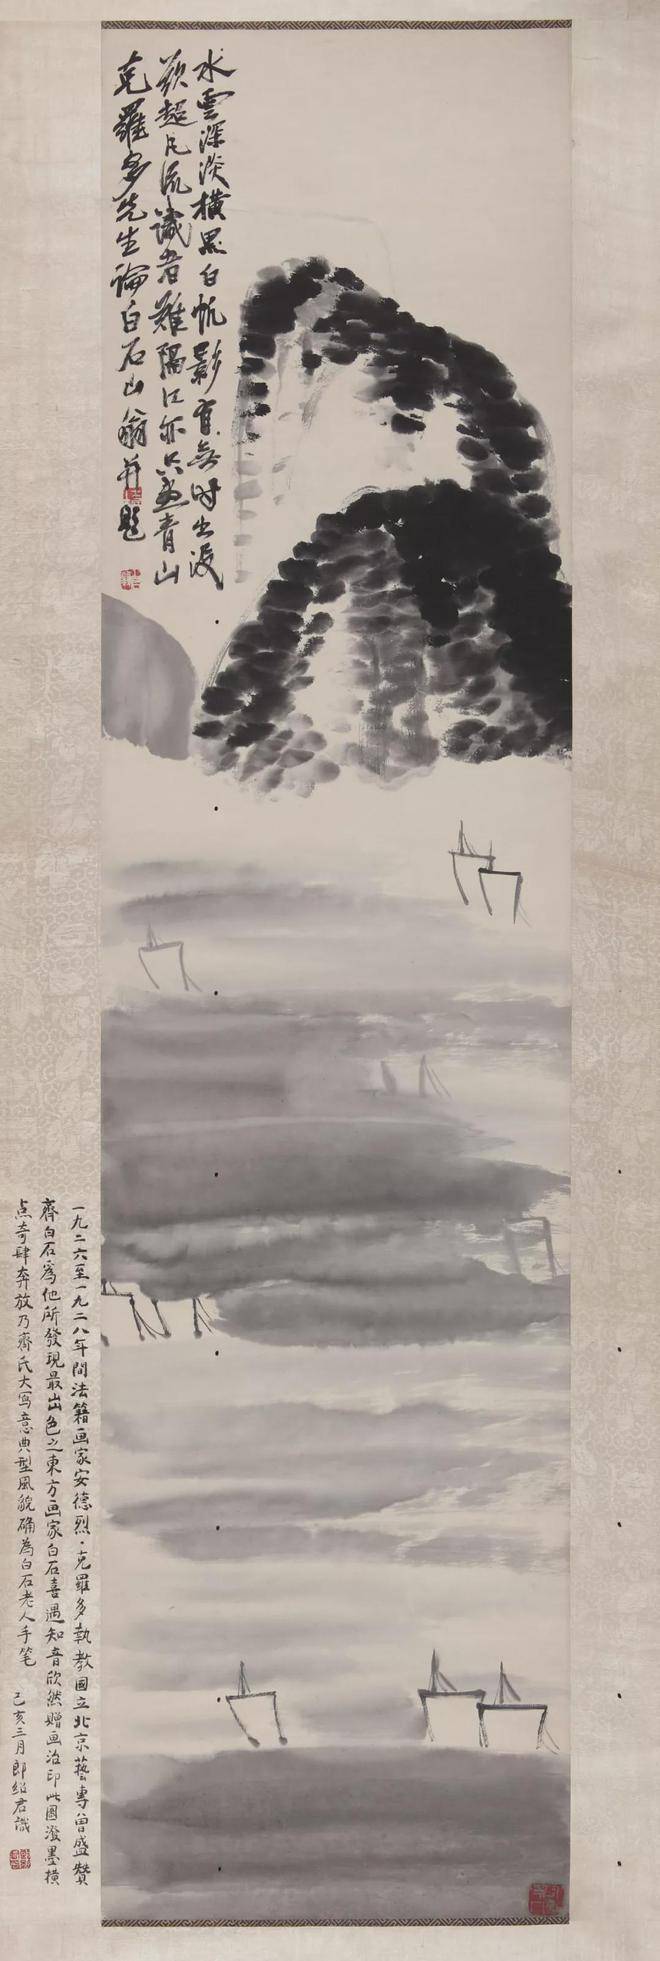 水雲深淡橫黑白帆影有無時出沒
欲超凡流識者難隔江亦只画青山
克羅多先生論白石山翁并題
一九二六至一九二八年間法籍画家安德烈·克羅多執教國立北京藝專曾盛贊
齊白石為他所發現最出色之東方画家白石喜遇知音欣然贈画治印此圖潑墨橫
点奇肆奔放乃齊氏大寫意典型風貌确為白石老人手笔
己亥三月郎紹君識